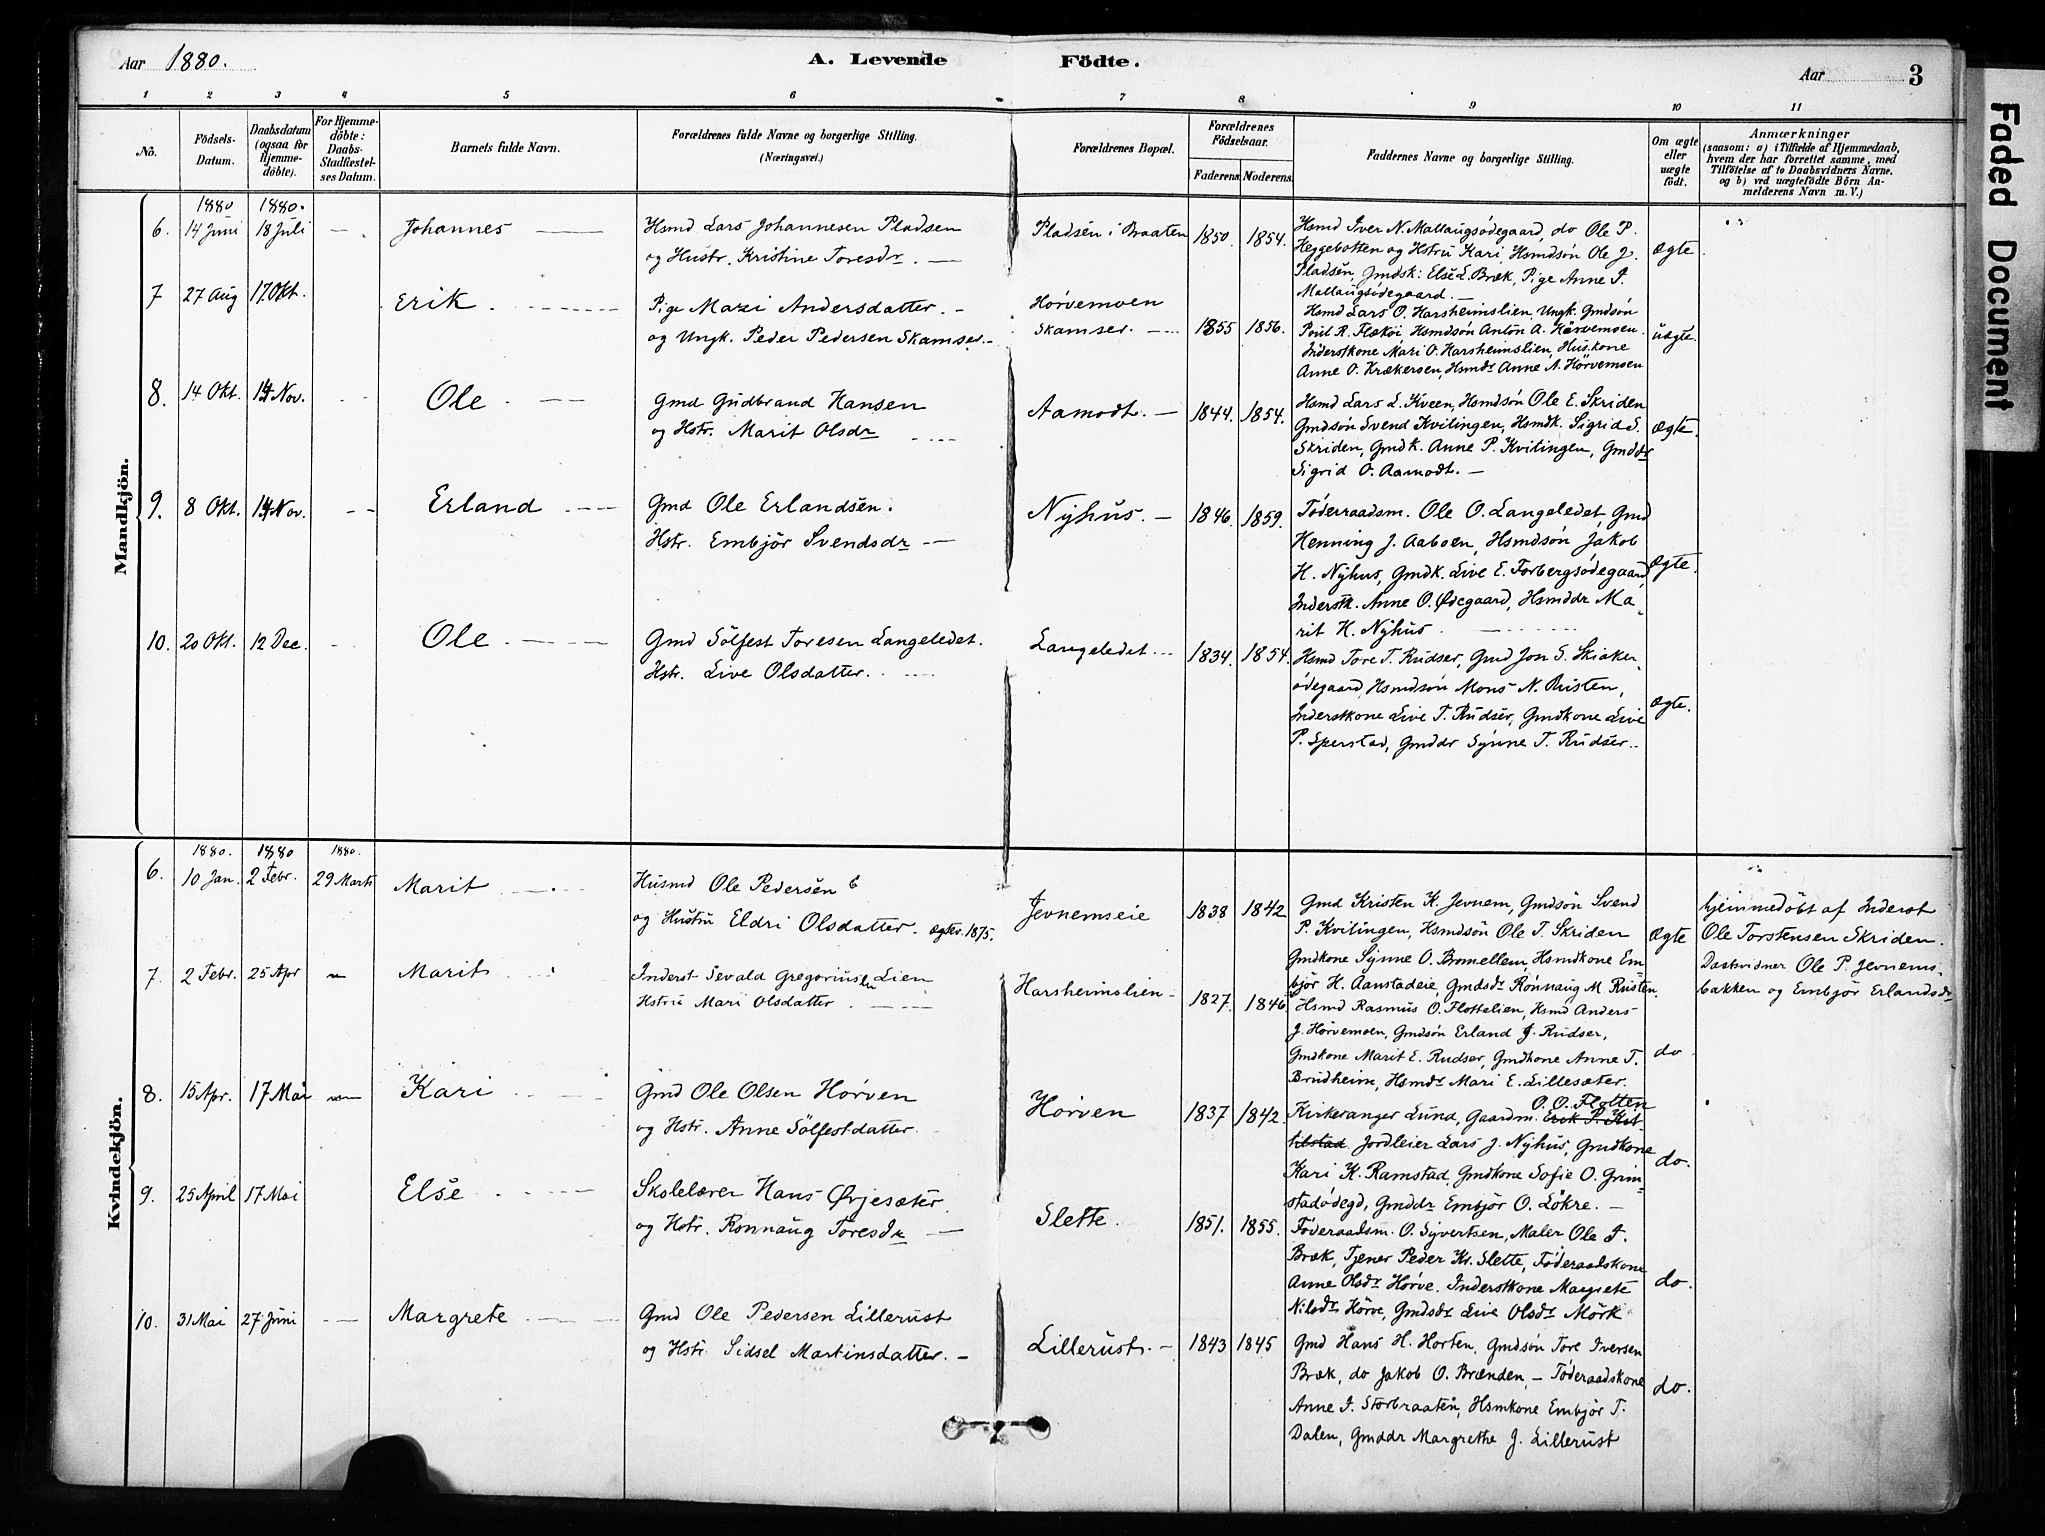 Aar 1880.
A. Levende Födte.
Aar
3
1 2 3 4 5 6 7 8 9 10 11
No.
Födsels-
Datum.
Daabsdatum
(ogsaa for
Hjemme-
döbte).
For Hjemme-
döbte:
Daabs-
Stadfæstel-
ses Datum.
Barnets fulde Navn.
Forældrenes fulde Navne og borgerlige Stilling.
(Næringsvei.)
Forældrenes Bopæl.
Forældrenes
Födselsaar.
Faderens. Moderens.
Faddernes Navne og borgerlige Stilling.
Om ægte
eller
uægte
födt.
Anmærkninger
(saasom: a) i Tilfælde af Hjemmedaab,
hvem der har forrettet samme, med
Tilföielse af to Daabsvidners Navne,
og b) ved uægtefödte Börn An-
melderens Navn m. V.)
Mandkjön.
1880 1880.
6. 14 Juni 18 Juli Johannes
Hsmd Lars Johannesen Pladsen
og Hustr. Kristine Toresdr.
Pladsen i Braaten 1850. 1854.
Hsmd Iver N. Mallaugsödegaard, do Ole P.
Heggebotten og Hstru Kari, Hsmdsön Ole J.
Pladsen, Gmdsk: Else L. Bræk, Pige Anne I.
Mallaugsödegaard.
Ægte.
7 27 Aug 17 Okt. Erik
Pige Mari Andersdatter.
og Ungk. Peder Pedersen Skamser.
Hörvemoen
Skamser. 1855 1856.
Hsmd Lars O. Harsheimslien, Ungk. Gmdsön
Poul R. Flæköi, Hsmdsön Anton A. Hörvemoen.
Inderstkone Mari O. Harsheimslien, Huskone
Anne O. Krækersen, Hsmdr Anne A. Hörvemoen
uægte.
8. 14 Okt. 14 Nov. Ole
Gmd Gudbrand Hansen
og Hstr. Marit Olsdr
Aamodt. 1844. 1854.
Hsmd Lars L. Kveen, Hsmdsön Ole E. Skriden
Gmdsön Svend Kvilingen, Hsmdk. Sigrid S.
Skriden, Gmdk. Anne P. Kvilingen, Gmddr
Sigrid O. Aamodt.
Ægte.
9. 8 Okt. 14 Nov. Erland
Gmd Ole Erlandsen.
Hstr. Embjör Svendsdr
Nyhus. 1846. 1859.
Föderraadsm. Ole O. Langeledet, Gmd
Henning J. Aaboen, Hsmdsön Jakob
H. Nyhus, Gmdk. Live E. Forbergsödegaard
Inderstk. Anne O. Ödegaard, Hsmddr Ma-
rit H. Nyhus.
Ægte.
10. 20 Okt. 12 Dec. Ole
Gmd Sölfest Toresen Langeledet.
Hstr. Live Olsdatter.
Langeledet 1834. 1854.
Hsmd Tore T. Rudser, Gmd Jon S. Skiaker-
ödegaard, Hsmdsön Mons N. Rusten,
Inderstkone Live T. Rudser, Gmdkone Live
P. Sperstad, Gmddr Synne T. Rudser.
Ægte.
Kvindekjön.
1880. 1880 1880.
6. 10 Jan. 2 Febr. 29 Marts Marit
Husmd Ole Pedersen
og Hustru Eldri Olsdatter. ægtev. 1875.
Jevnemseie 1838 1842
Gmd Kristen K. Jevnem, Gmdsön Svend
P. Kvilingen, Hsmdsön Ole T. Skriden
Gmdkone Synne O. Bromellem, Hsmdkone Em-
björ H. Aanstadeie, Gmdsdr Rönnaug M Rusten.
Ægte
hjemmedöbt af Inderst
Ole Torstensen Skriden.
Daabsvidner Ole P. Jevnems-
bakken og Embjör Erlandsdr
7. 2 Febr. 25 Apr Marit
Inderst Sevald Gregoriusen Lien
Hstru Mari Olsdatter
Harsheimslien 1827. 1846
Hsmd Rasmus O. Flottelien, Hsmd Anders
J. Hörvemoen, Gmdsön Erland J. Rudser,
Gmdkone Marit E. Rudser, Gmdkone Anne T.
Brudheim, Hsmdr Mari E. Lillesæter.
do
8. 15 Apr. 17 Mai Kari
Gmd Ole Olsen Hörven
og Hstr. Anne Sölfestdatter.
Hörven 1837 1842
O. O. Flotten
Kirkesanger Lund, Gaardm. Erik P. Kit-
tilstad Jordleier Lars J. Nyhus, Gmdkone
Kari K. Ramstad, Gmdkone Sofie O. Grim-
stadödegd, Gmddr Embjör O. Lökre.
do.
9. 25 April 17 Mai Else
Skolelærer Hans Övjesæter.
og Hstr. Ronnaug Toresdr
Slette. 1851. 1855.
Föderaadsm. O. Syvertsen, Maler Ole I.
Bræk, Tjener Peder Kr. Slette, Föderaadskone
Anne Olsdr Hörve. Inderstkone Margrete
Nilsdr Hörve, Gmdsdr Live Olsdr Mörk
do.
10. 31 Mai 27 Juni Margrete
Gmd Ole Pedersen Lillerust
og Hstr. Sidsel Martinsdatter.
Lillerust. 1843 1845
Gmd Hans H. Horten, Gmdsön Tore Iversen
Bræk, do Jakob O. Brænden, - Föderaadskone
Anne I. Storbraaten, Hsmkone Embjör T.
Dalen, Gmddr Margrethe J. Lillerust
do.
Faded Document